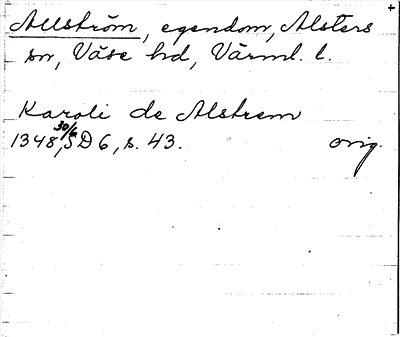 Allström, egendom, Alsters
sn, Väse hd, Värml. l.
Karoli de Alstrem
1348 30/6, SD 6, s. 43. orig.